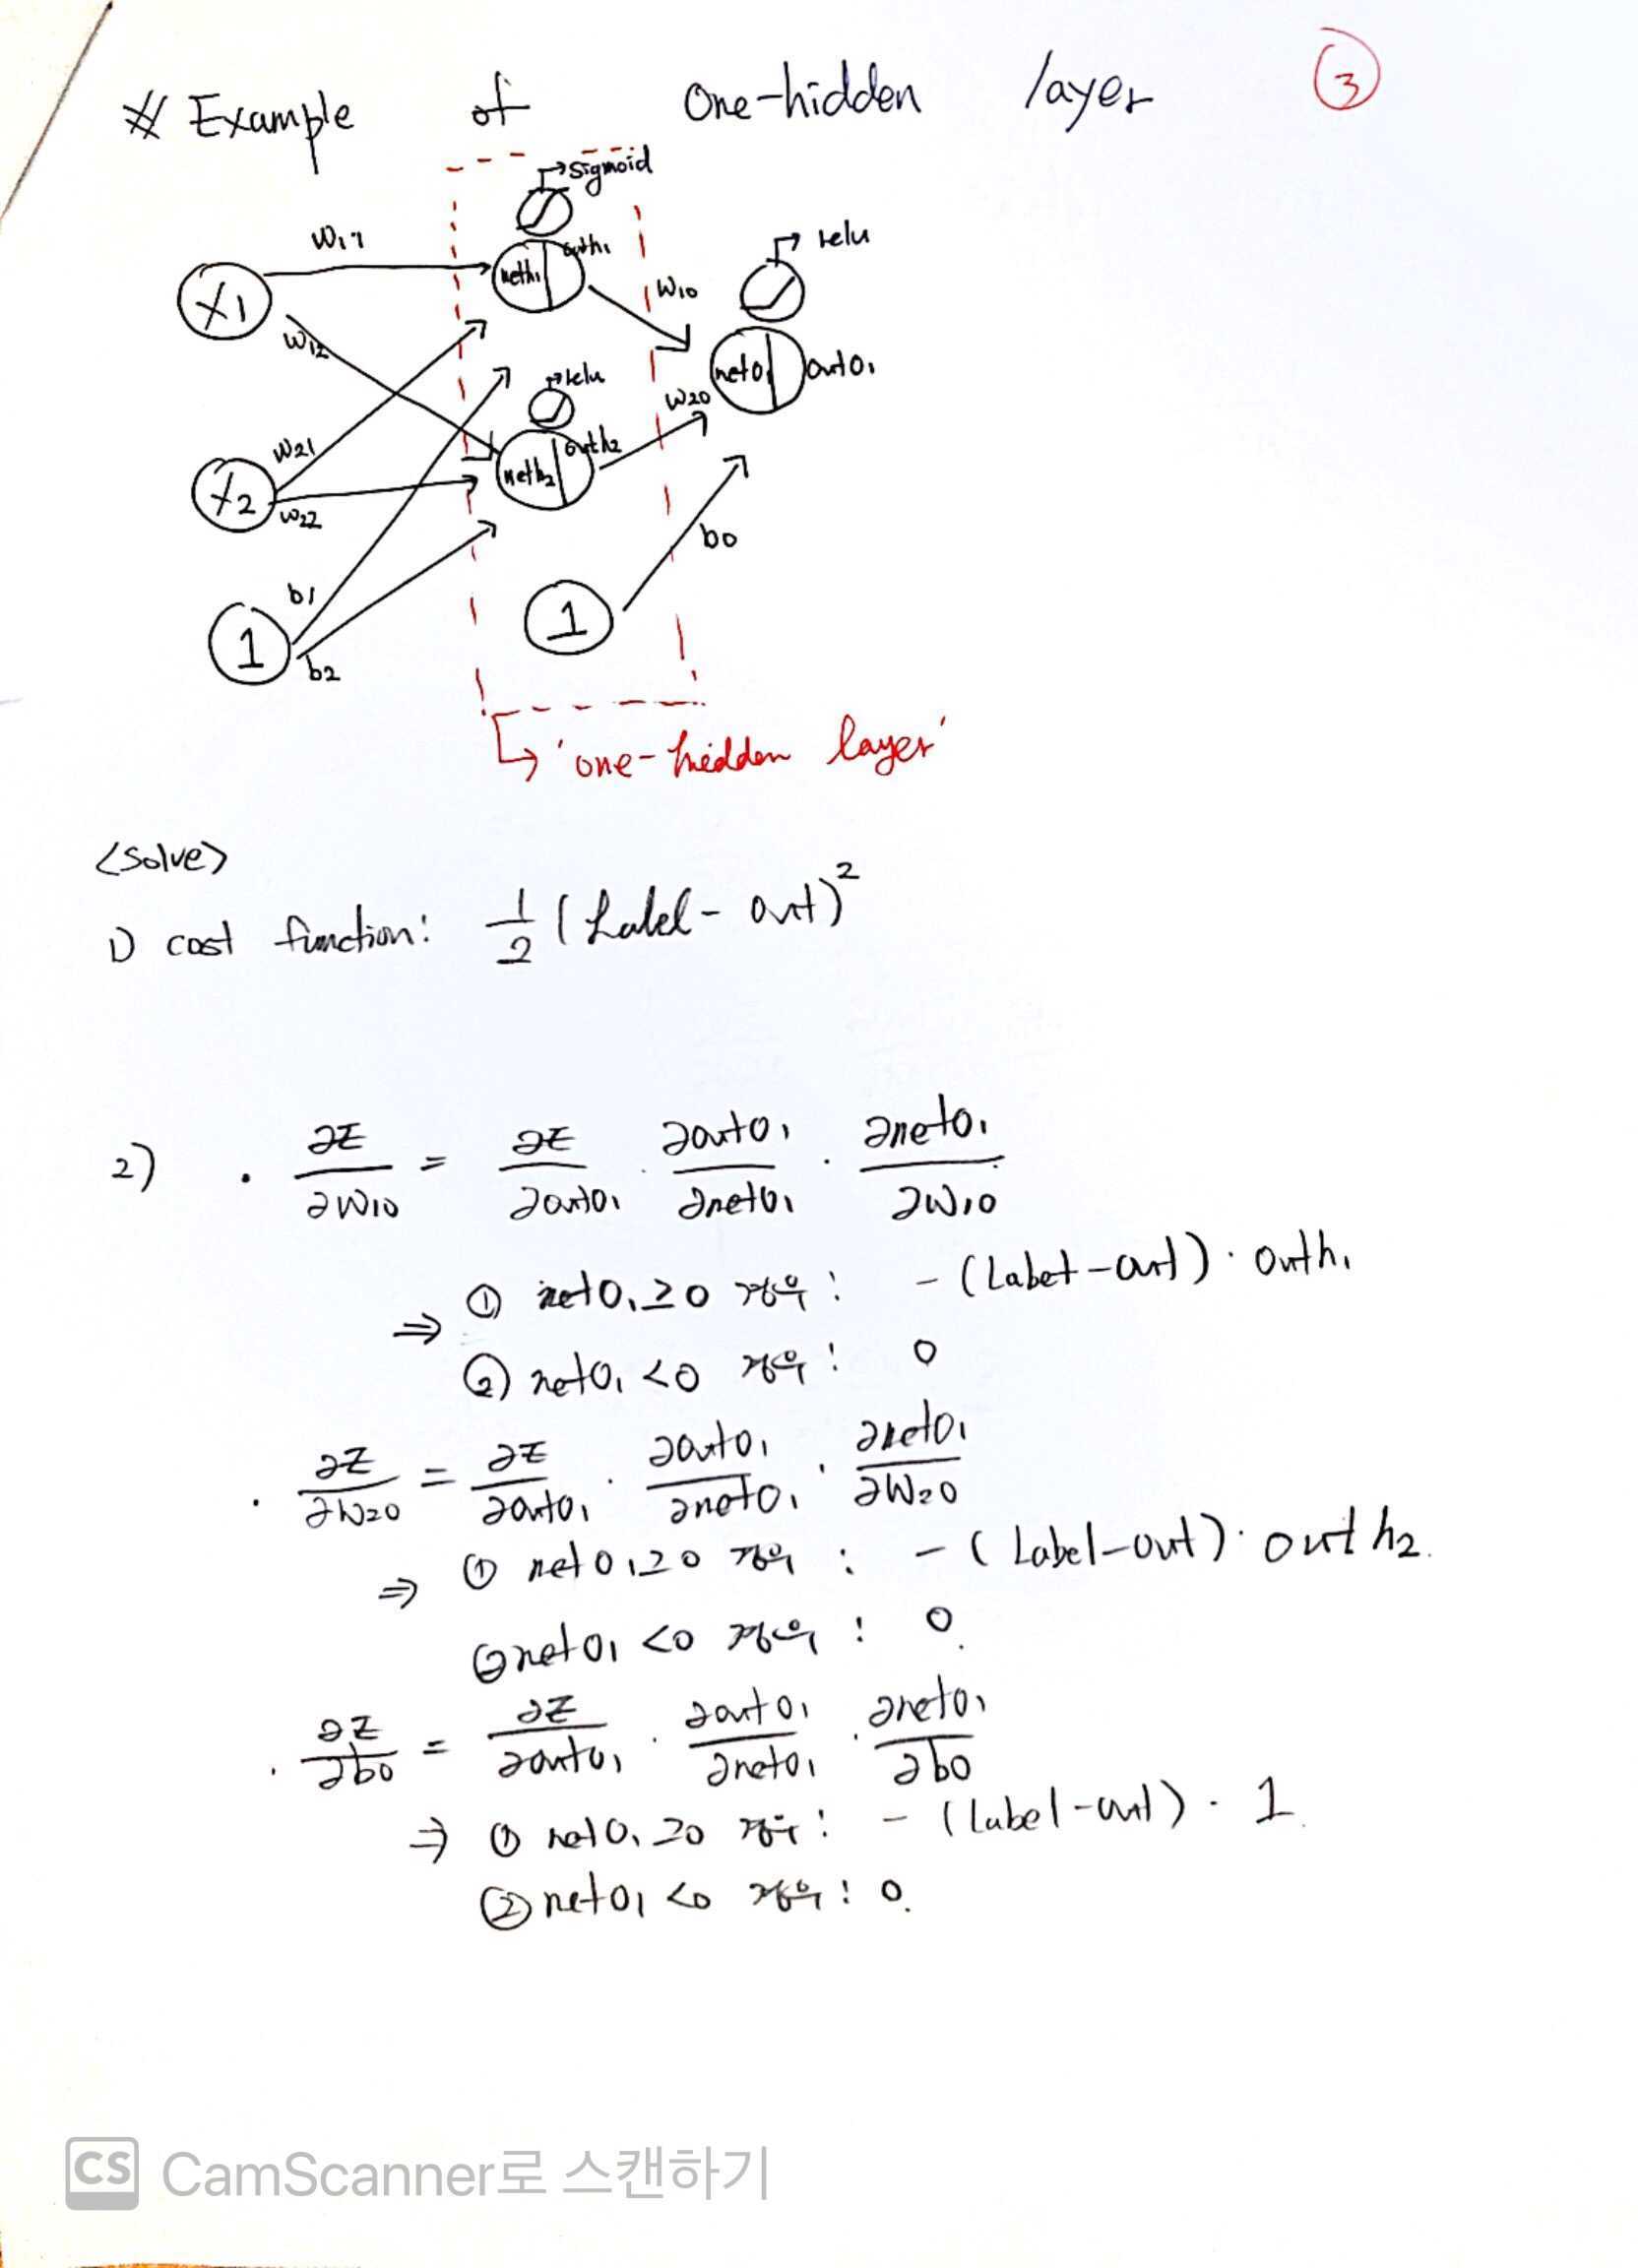 # Example of One-hidden layer ③
sigmoid
relu
w11
neth1 outh1
w10
X1
w12
relu
neto1 outo1
w20
w21
neth2 outh2
X2
w22
b0
b1
1
1
b2
'one-hidden layer'
<Solve>
1) cost function: 1/2 (Label - out)²
2) · ∂E/∂w10 = ∂E/∂outo1 · ∂outo1/∂neto1 · ∂neto1/∂w10
⇒ ① neto1 ≥ 0 경우 : -(Label-out) · outh1
② neto1 < 0 경우 : 0
· ∂E/∂w20 = ∂E/∂outo1 · ∂outo1/∂neto1 · ∂neto1/∂w20
⇒ ① neto1 ≥ 0 경우 : -(Label-out) · outh2.
② neto1 < 0 경우 : 0.
· ∂E/∂b0 = ∂E/∂outo1 · ∂outo1/∂neto1 · ∂neto1/∂b0
⇒ ① neto1 ≥ 0 경우 : -(label-out) · 1.
② neto1 < 0 경우 : 0.
CS CamScanner로 스캔하기